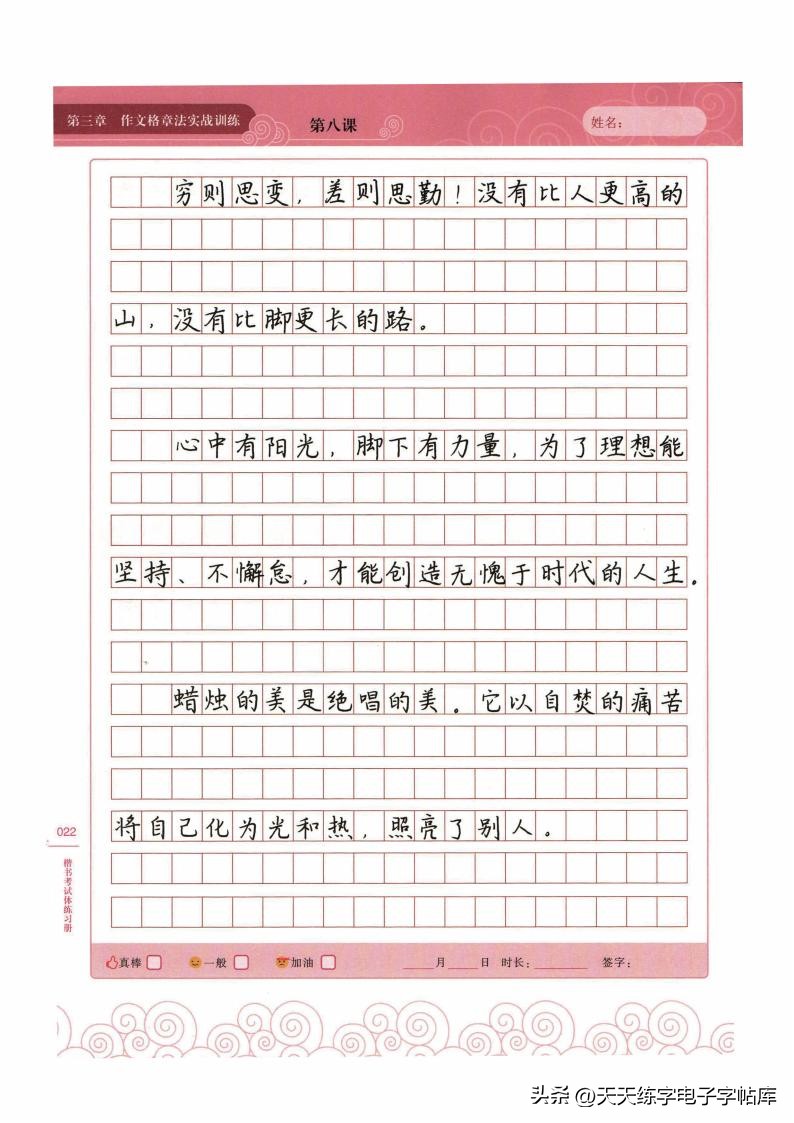 第三章 作文格章法实战训练
第八课
姓名：
穷则思变，差则思勤！没有比人更高的
山，没有比脚更长的路。
心中有阳光，脚下有力量，为了理想能
坚持、不懈怠，才能创造无愧于时代的人生。
蜡烛的美是绝唱的美。它以自焚的痛苦
将自己化为光和热，照亮了别人。
022
楷书考试体练习册
真棒 一般 加油 ____月____日 时长：________ 签字：
头条 @天天练字电子字帖库